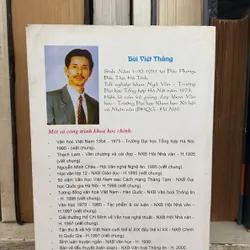 Bùi Việt Thắng
Sinh: Năm 1951 tại Đậu Phong,
Đức Thọ, Hà Tĩnh.
Tốt nghiệp khoa Ngữ Văn - Trường
Đại học Tổng hợp Hà Nội năm 1973.
Hiện là cán bộ giảng dạy khoa Văn
học - Trường Đại học Khoa học Xã hội
và Nhân văn (ĐHQG - Hà Nội)
Một số công trình khoa học chính:
- Văn học Việt Nam 1954 - 1975 - Trường Đại học Tổng hợp Hà Nội
1990 - (viết chung).
- Thạch Lam - Văn chương và cái đẹp - NXB Hội Nhà văn - H.
(viết chung).
- Nguyễn Minh Châu - Hội Văn nghệ Nghệ An, (viết chung).
- Học văn lớp 12 - NXB Giáo dục - H. (viết chung).
- 50 năm Văn học Việt Nam sau Cách mạng Tháng Tám - NXB Đại
học Quốc gia Hà Nội - H.1996 (viết chung)
- Tướng đồng văn hoá Việt Nam - NXB Văn hoá Thông tin
- H. (viết chung)
- Văn học 1975 - 1985 - Tác phẩm & dư luận - NXB Hội Nhà văn -
H. 1997 (viết chung).
- Giải thưởng Hồ Chí Minh về Văn học nghệ thuật - NXB Hội Nhà văn -
H. 1997 (viết chung).
- NXB Chính trị
Quốc Gia - H. 1997 (viết chung)
- Bình luận truyện ngắn - NXB Văn học - H. 1999.
- Bàn về tiểu thuyết - NXB Văn hoá Thông tin - H. 2000.